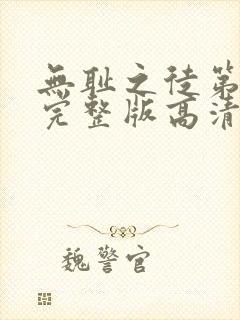 無耻之徒第
完整版高清
魏警官